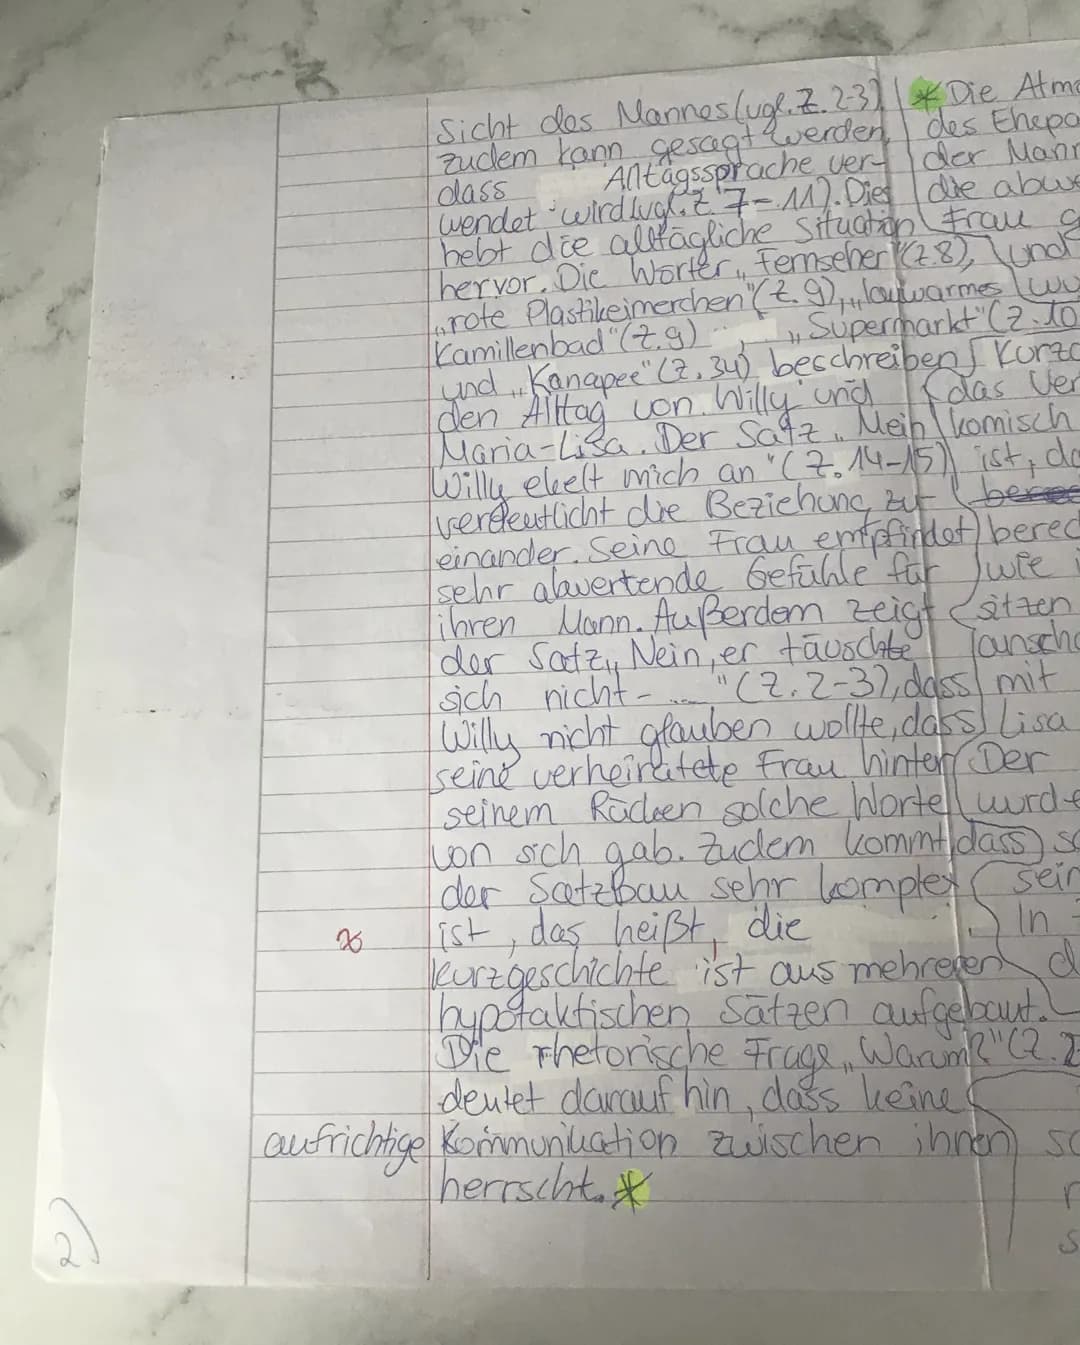 Sicht des Mannes (vgl. Z. 2-3)
zudem kann gesagt werden,
dass Alltagssprache ver-
wendet wird (vgl. Z. 7-11). Dies
hebt die alltägliche Situation
hervor. Die Wörter „Fernseher" (Z. 8),
„rote Plastikeimerchen" (Z. 9), „lauwarmes
Kamillenbad" (Z. 9) , „Supermarkt" (Z. 10
und „Kanapee" (Z. 34) beschreiben
den Alltag von Willy und
Maria-Lisa. Der Satz „Mein
Willy ekelt mich an" (Z. 14-15)
verdeutlicht die Beziehung zu
einander. Seine Frau empfindet
sehr abwertende Gefühle für
ihren Mann. Außerdem zeigt
der Satz „Nein, er täuschte
sich nicht - ...." (Z. 2-3), dass
Willy nicht glauben wollte, dass
seine verheiratete Frau hinter
seinem Rücken solche Worte
von sich gab. Zudem kommt dass
der Satzbau sehr komplex
ist, das heißt, die
Kurzgeschichte ist aus mehreren
hypotaktischen Sätzen aufgebaut.
Die rhetorische Frage „Warum?" (Z. 2
deutet darauf hin, dass keine
aufrichtige Kommunikation zwischen ihnen
herrscht. *
* Die Atm
des Ehepa
der Mann
die abwe
Frau
und
Kurzg
das Ver
komisch
ist, da
bered
wie
sitzen
ansch
mit
Lisa
Der
wurde
sein
In
2)